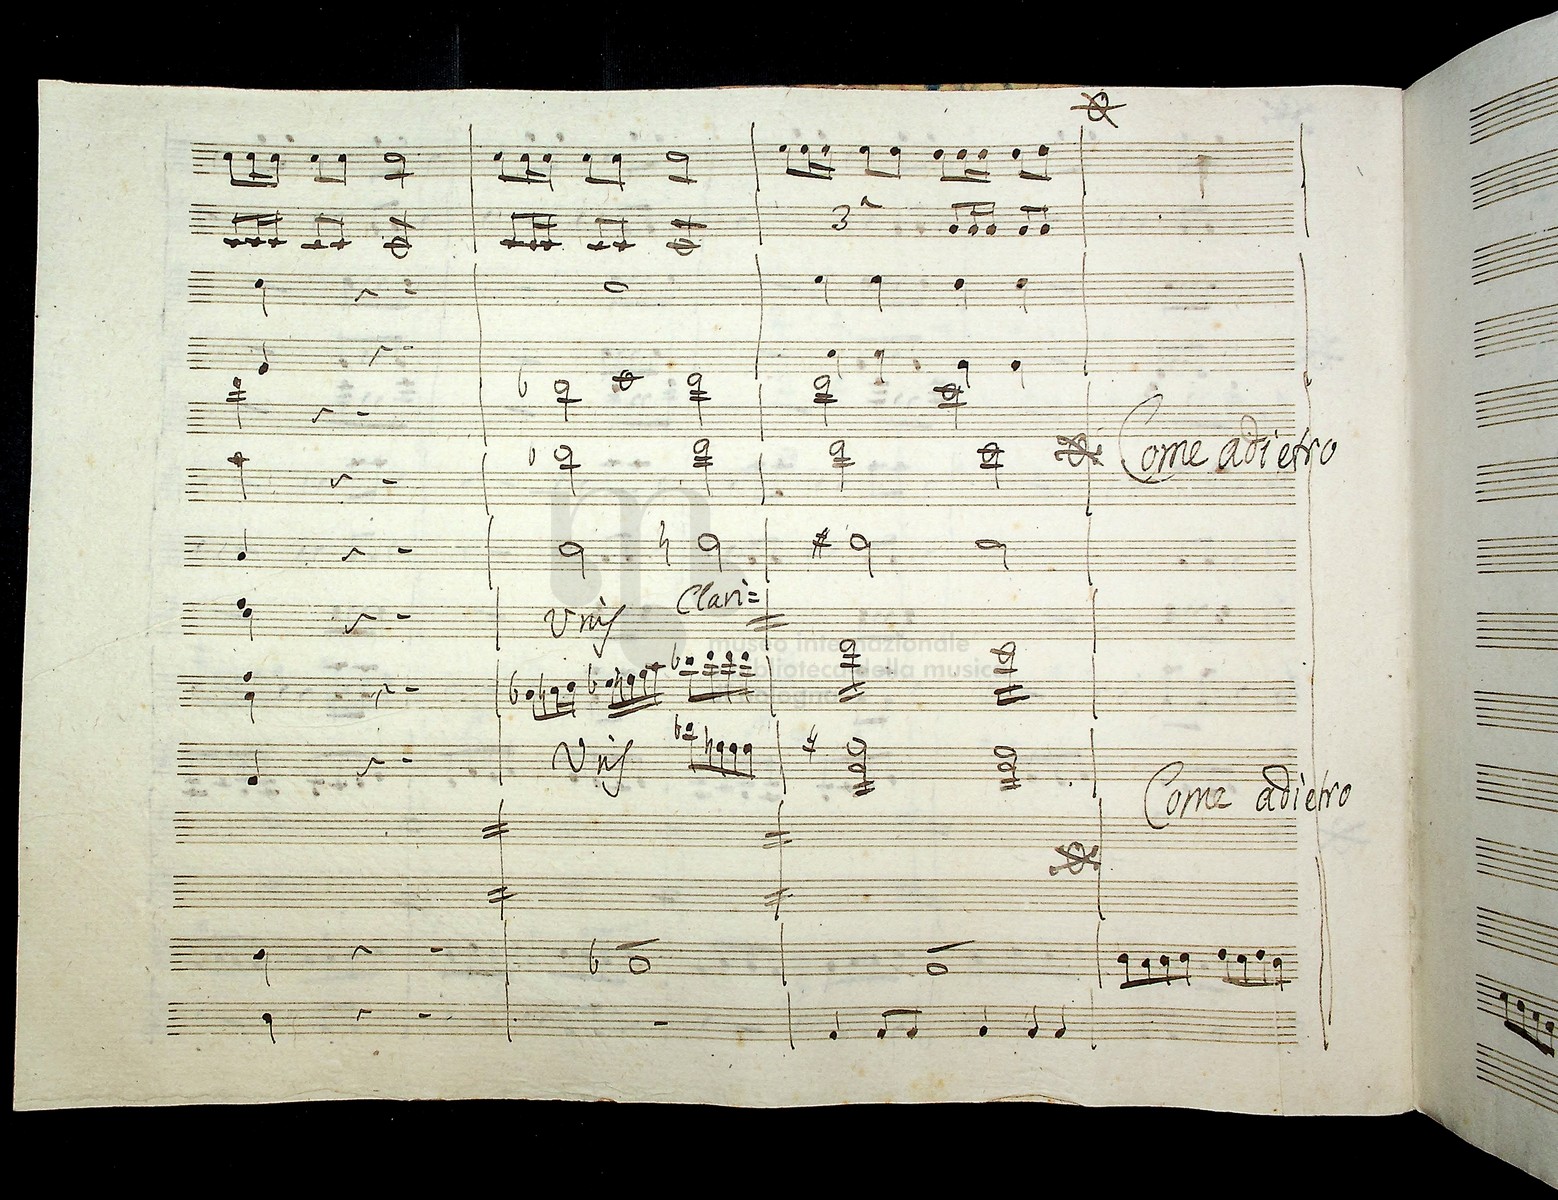 3ª
Come adietro
Clari=
Unis
museo internazionale
biblioteca della musica
di bologna
Unis
Come adietro